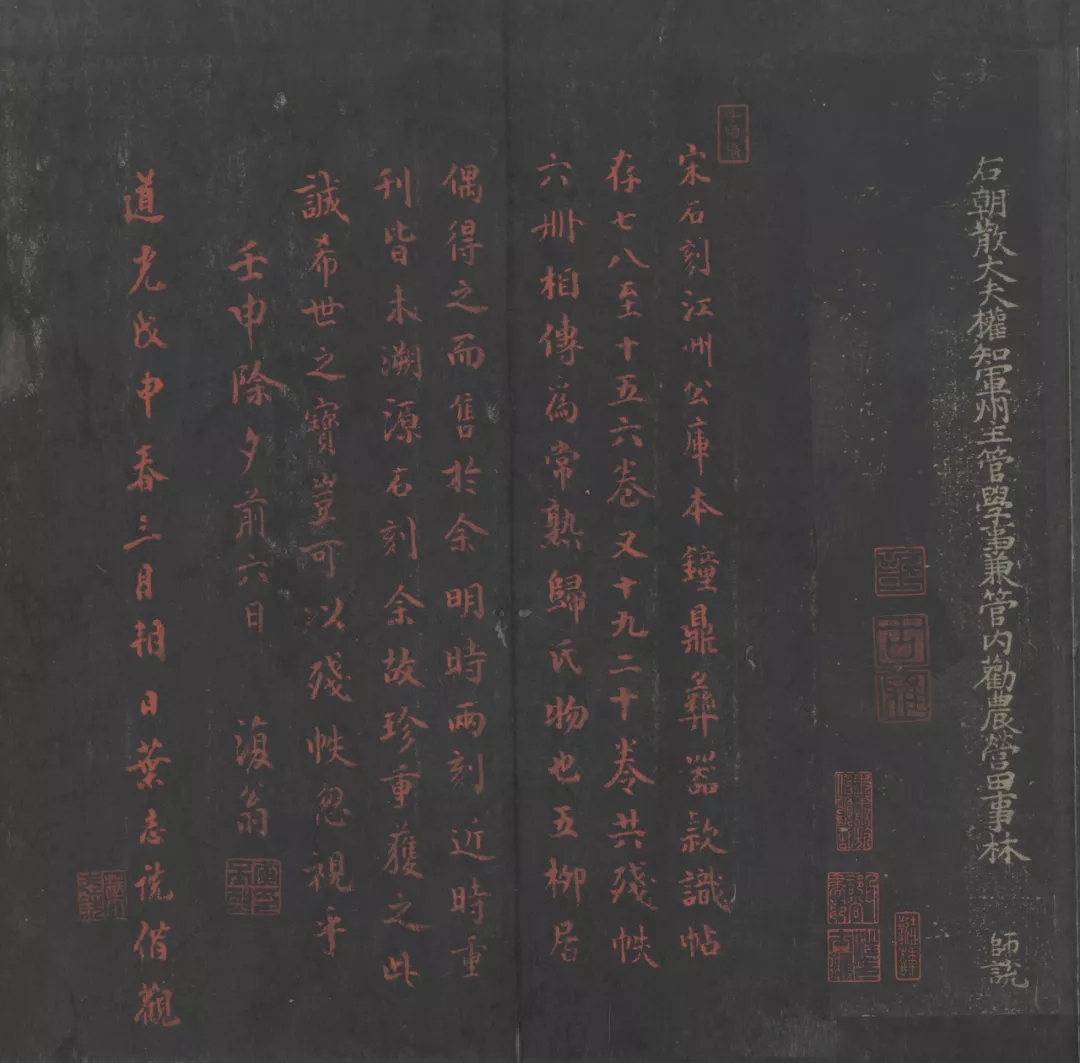 右朝散大夫權知軍州主管學事兼管内勸農營田事林
師説
宋石刻江州公庫本鐘鼎彝器款識帖
存七八至十五六卷又十九二十卷共殘帙
六册相傳爲常熟歸氏物也五柳居
偶得之而售於余明時兩刻近時重
刊皆未溯源石刻余故珍重獲之此
誠希世之寶豈可以殘帙忽視乎
壬申除夕前六日
復翁
道光戊申春三月朔日葉志詵借觀